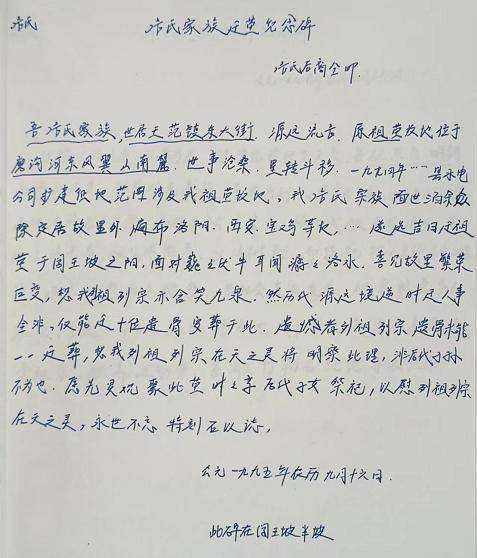 冯氏
冯氏家族迁茔纪念碑
冯氏后裔全叩
吾冯氏家族,世居王范镇东大街.源远流长,原祖茔故址位于
磨沟河东凤翼山南麓.世事沧桑.星转斗移.一九九四年……县水电
公司扩建征地范围涉及我祖茔故地,我冯氏家族面世泊余众
除定居故里外,遍布洛阳.西安.宝鸡等地,…遂选吉日迁祖
茔于阎王坡之阳,面对巍之伏牛耳闻潺之洛水.喜见故里繁荣
巨变,想我祖列宗亦含笑九泉.然历代源远境迁时迁人事
全非,仅能迁十位遗骨安葬于此.遗憾若列祖列宗遗骨未能
一一迁葬,想我列祖列宗在天之灵将明察此理,非后代子孙
不为也.愿先灵优聚此茔时之享后代子女祭祀,以慰列祖列宗
在天之灵,永世不忘 特刻石以志,
公元一九九五年农历九月十六日.
此碑在阎王坡半坡